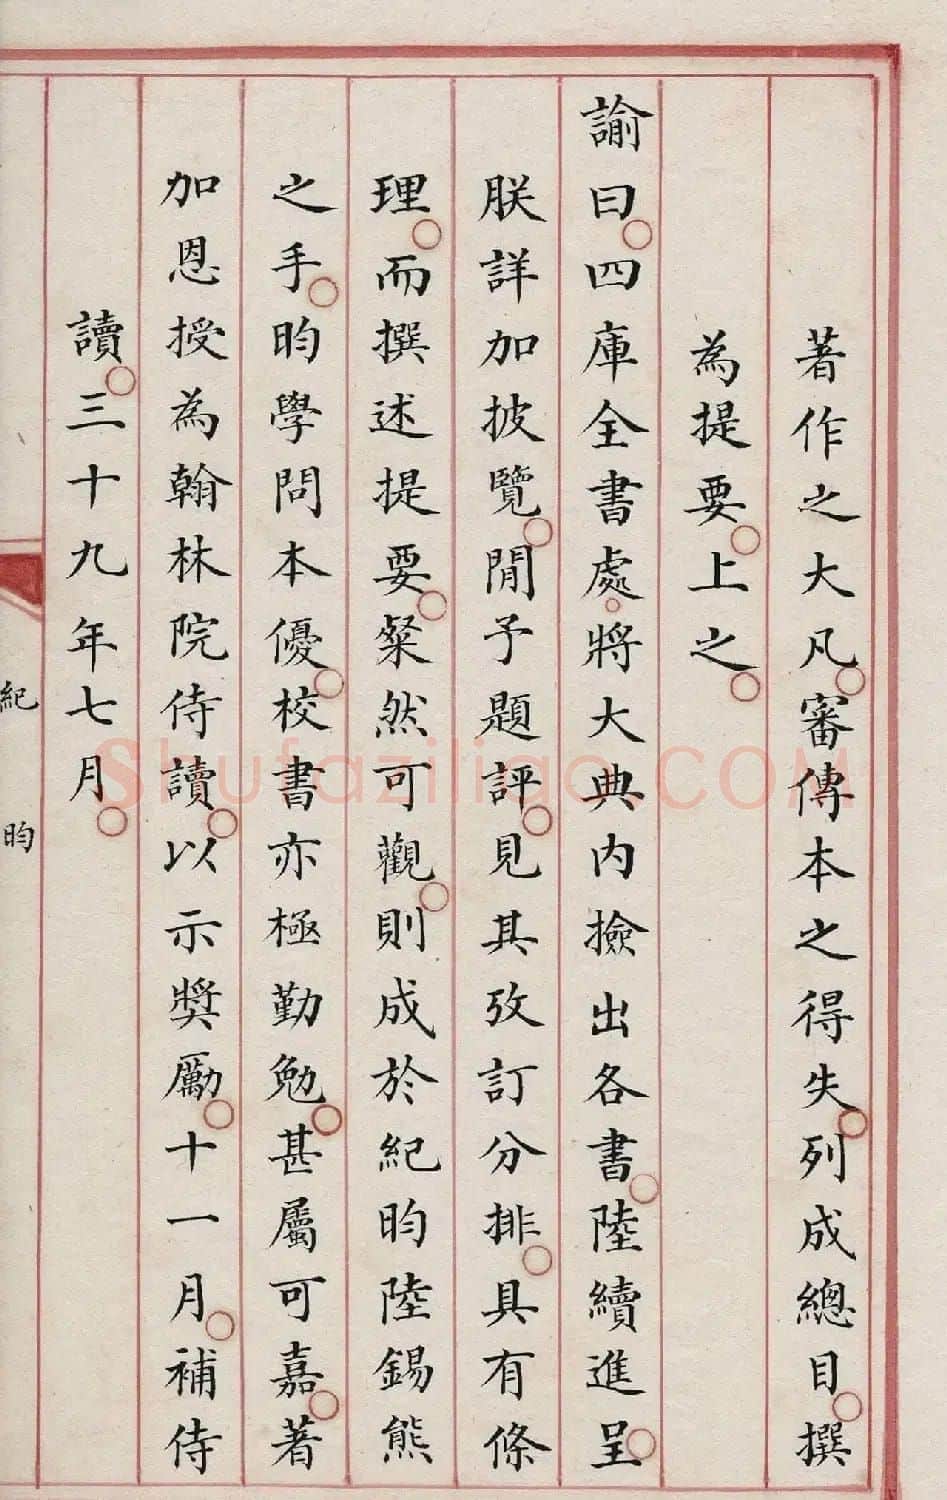 著作之大凡。審傳本之得失。列成總目。撰
為提要。上之。
諭曰。四庫全書處。將大典內撿出各書。陸續進呈。
朕詳加披覽。閒予題評。見其攷訂分排。具有條
理。而撰述提要。粲然可觀。則成於紀昀陸錫熊
之手。昀學問本優。校書亦極勤勉。甚屬可嘉。著
加恩授為翰林院侍讀。以示奬勵。十一月。補侍
讀。三十九年七月。
紀昀
Shufaziliao.COM